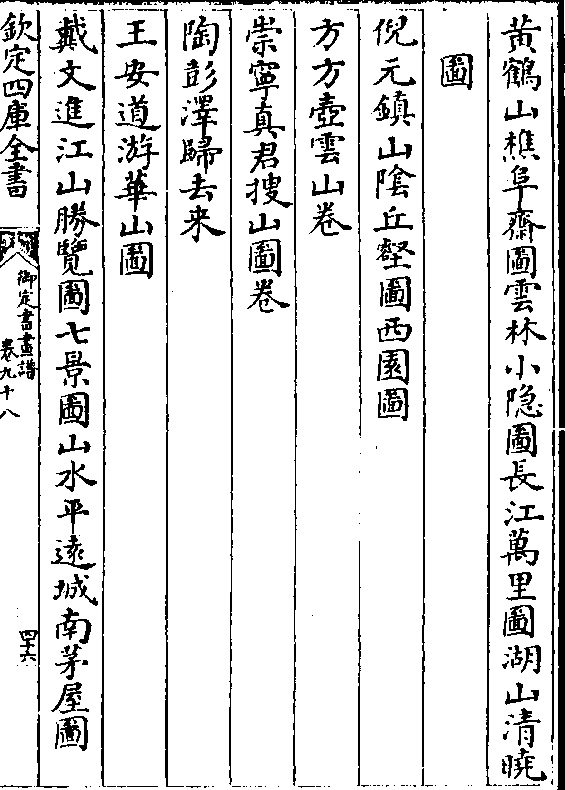 黄鶴山樵阜齋圖雲林小隐圖長江萬里圖湖山清曉
圖
倪元鎮山隂丘壑圖西園圖
方方壺雲山卷
崇寧真君搜山圖卷
陶彭澤歸去来
王安道游華山圖
戴文進江山勝覽圖七景圖山水平遠城南茅屋圖
欽定四庫全書
御定書畫譜
卷九十八
四十六